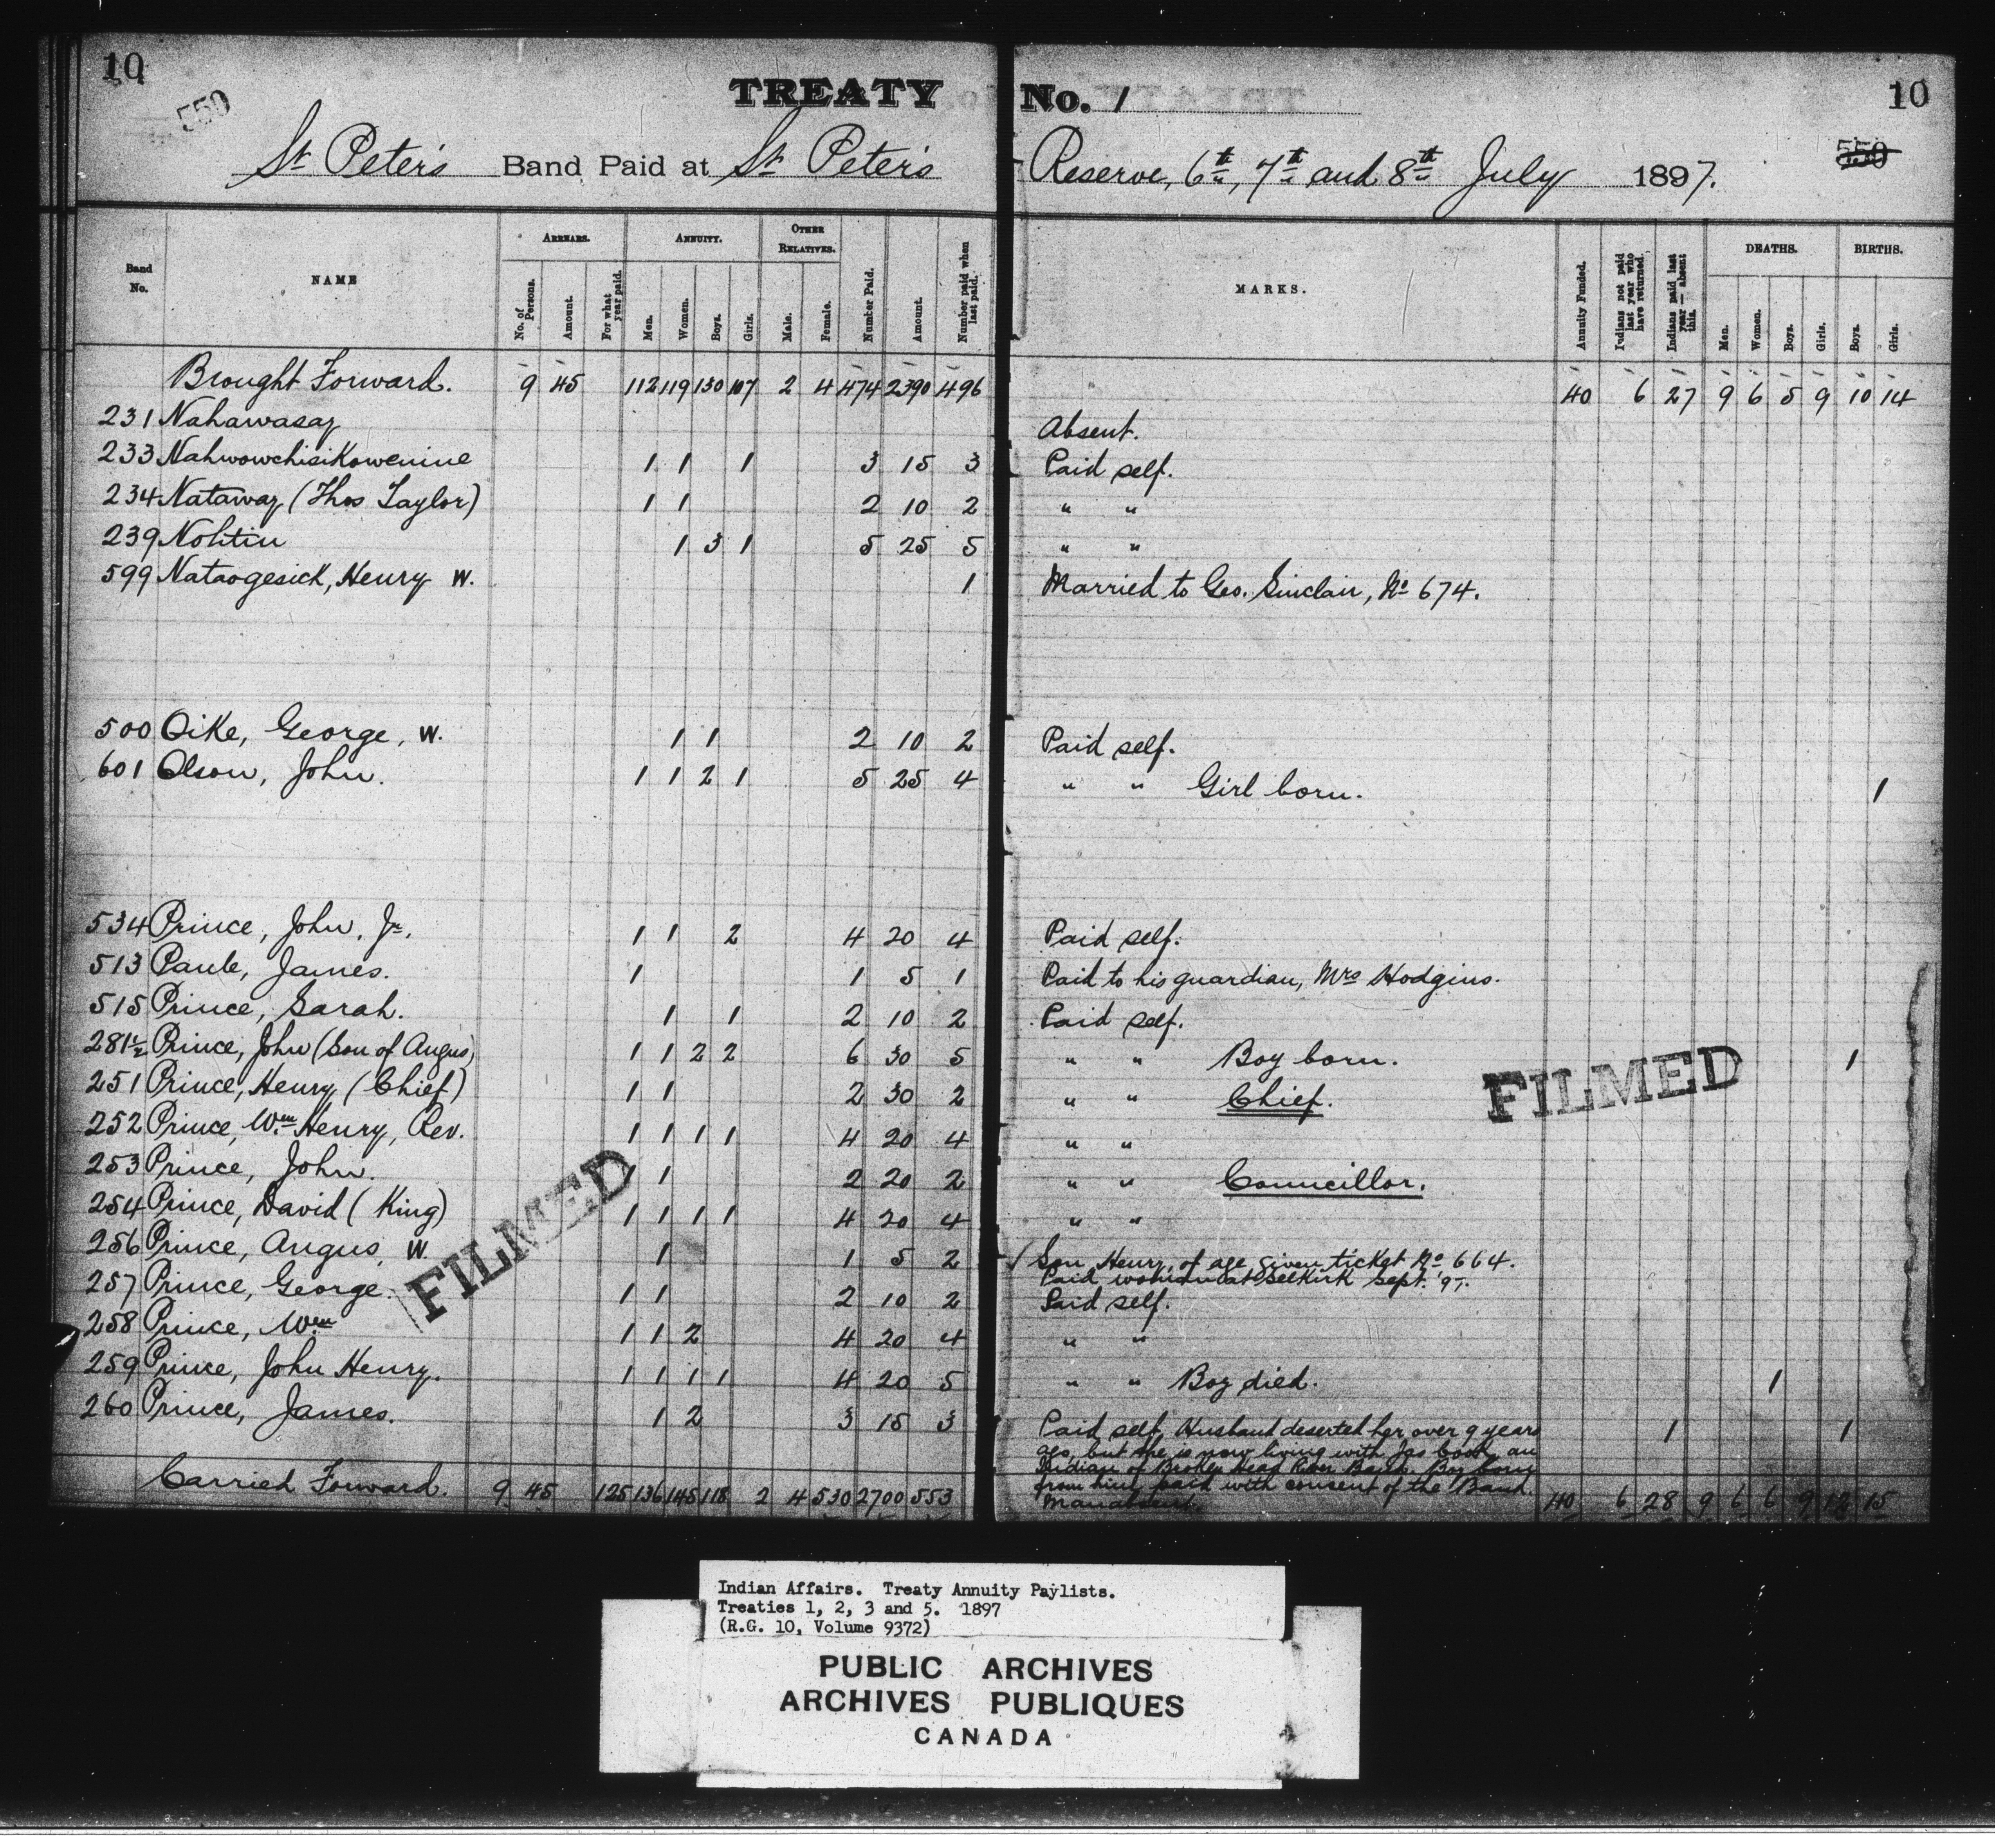 10
550
TREATY No. 1
10
550
St Peter's Band Paid at St Peter's Reserve, 6th, 7th and 8th July 1897.
Band No.
NAME
ARREARS.
No. of Persons.
Amount.
For what year paid.
ANNUITY.
Men.
Women.
Boys.
Girls.
OTHER RELATIVES.
Male.
Female.
Number Paid.
Amount.
Number paid when last paid.
MARKS.
Annuity Funded.
Indians not paid last year who have returned.
Indians paid last year — absent this.
DEATHS.
Men.
Women.
Boys.
Girls.
BIRTHS.
Boys.
Girls.
Brought Forward. 9 45 112 119 130 107 2 4 474 2390 496 40 6 27 9 6 5 9 10 14
231 Nahawasay Absent.
233 Nahwowchisikowenine 1 1 1 3 15 3 Paid self.
234 Nataway (Thos Taylor) 1 1 2 10 2 " "
239 Nohtin 1 3 1 5 25 5 " "
599 Nataogesick, Henry W. 1 Married to Geo. Sinclair, No 674.
500 Oike, George, W. 1 1 2 10 2 Paid self.
601 Olson, John. 1 1 2 1 5 25 4 " " Girl born. 1
534 Prince, John, Jr. 1 1 2 4 20 4 Paid self.
513 Paule, James. 1 1 5 1 Paid to his guardian, Mrs Hodgins.
515 Prince, Sarah. 1 1 2 10 2 Paid self.
281½ Prince, John (Son of Angus) 1 1 2 2 6 30 5 " " Boy born. 1
251 Prince, Henry (Chief) 1 1 2 30 2 " " Chief.
252 Prince, Wm Henry, Rev. 1 1 1 1 4 20 4 " "
253 Prince, John. 1 1 2 20 2 " " Councillor.
254 Prince, David (King) 1 1 1 1 4 20 4 " "
256 Prince, Angus, W. 1 1 5 2 Son Henry, of age given ticket No 664.
Paid woman at Selkirk Sept. '97.
257 Prince, George. 1 1 2 10 2 Paid self.
258 Prince, Wm 1 1 2 4 20 4 " "
259 Prince, John Henry. 1 1 1 1 4 20 5 " " Boy died. 1
260 Prince, James. 1 2 3 15 3 Paid self, Husband deserted her over 9 years 1 1
ago, but she is now living with Jas Cook, an
Indian of Broken Head River Band. Boy born
from him, paid with consent of the Band.
Man absent.
Carried Forward. 9 45 125 136 145 118 2 4 530 2700 553 40 6 28 9 6 6 9 12 15
FILMED
FILMED
Indian Affairs. Treaty Annuity Paylists.
Treaties 1, 2, 3 and 5. 1897
(R.G. 10, Volume 9372)
PUBLIC ARCHIVES
ARCHIVES PUBLIQUES
CANADA